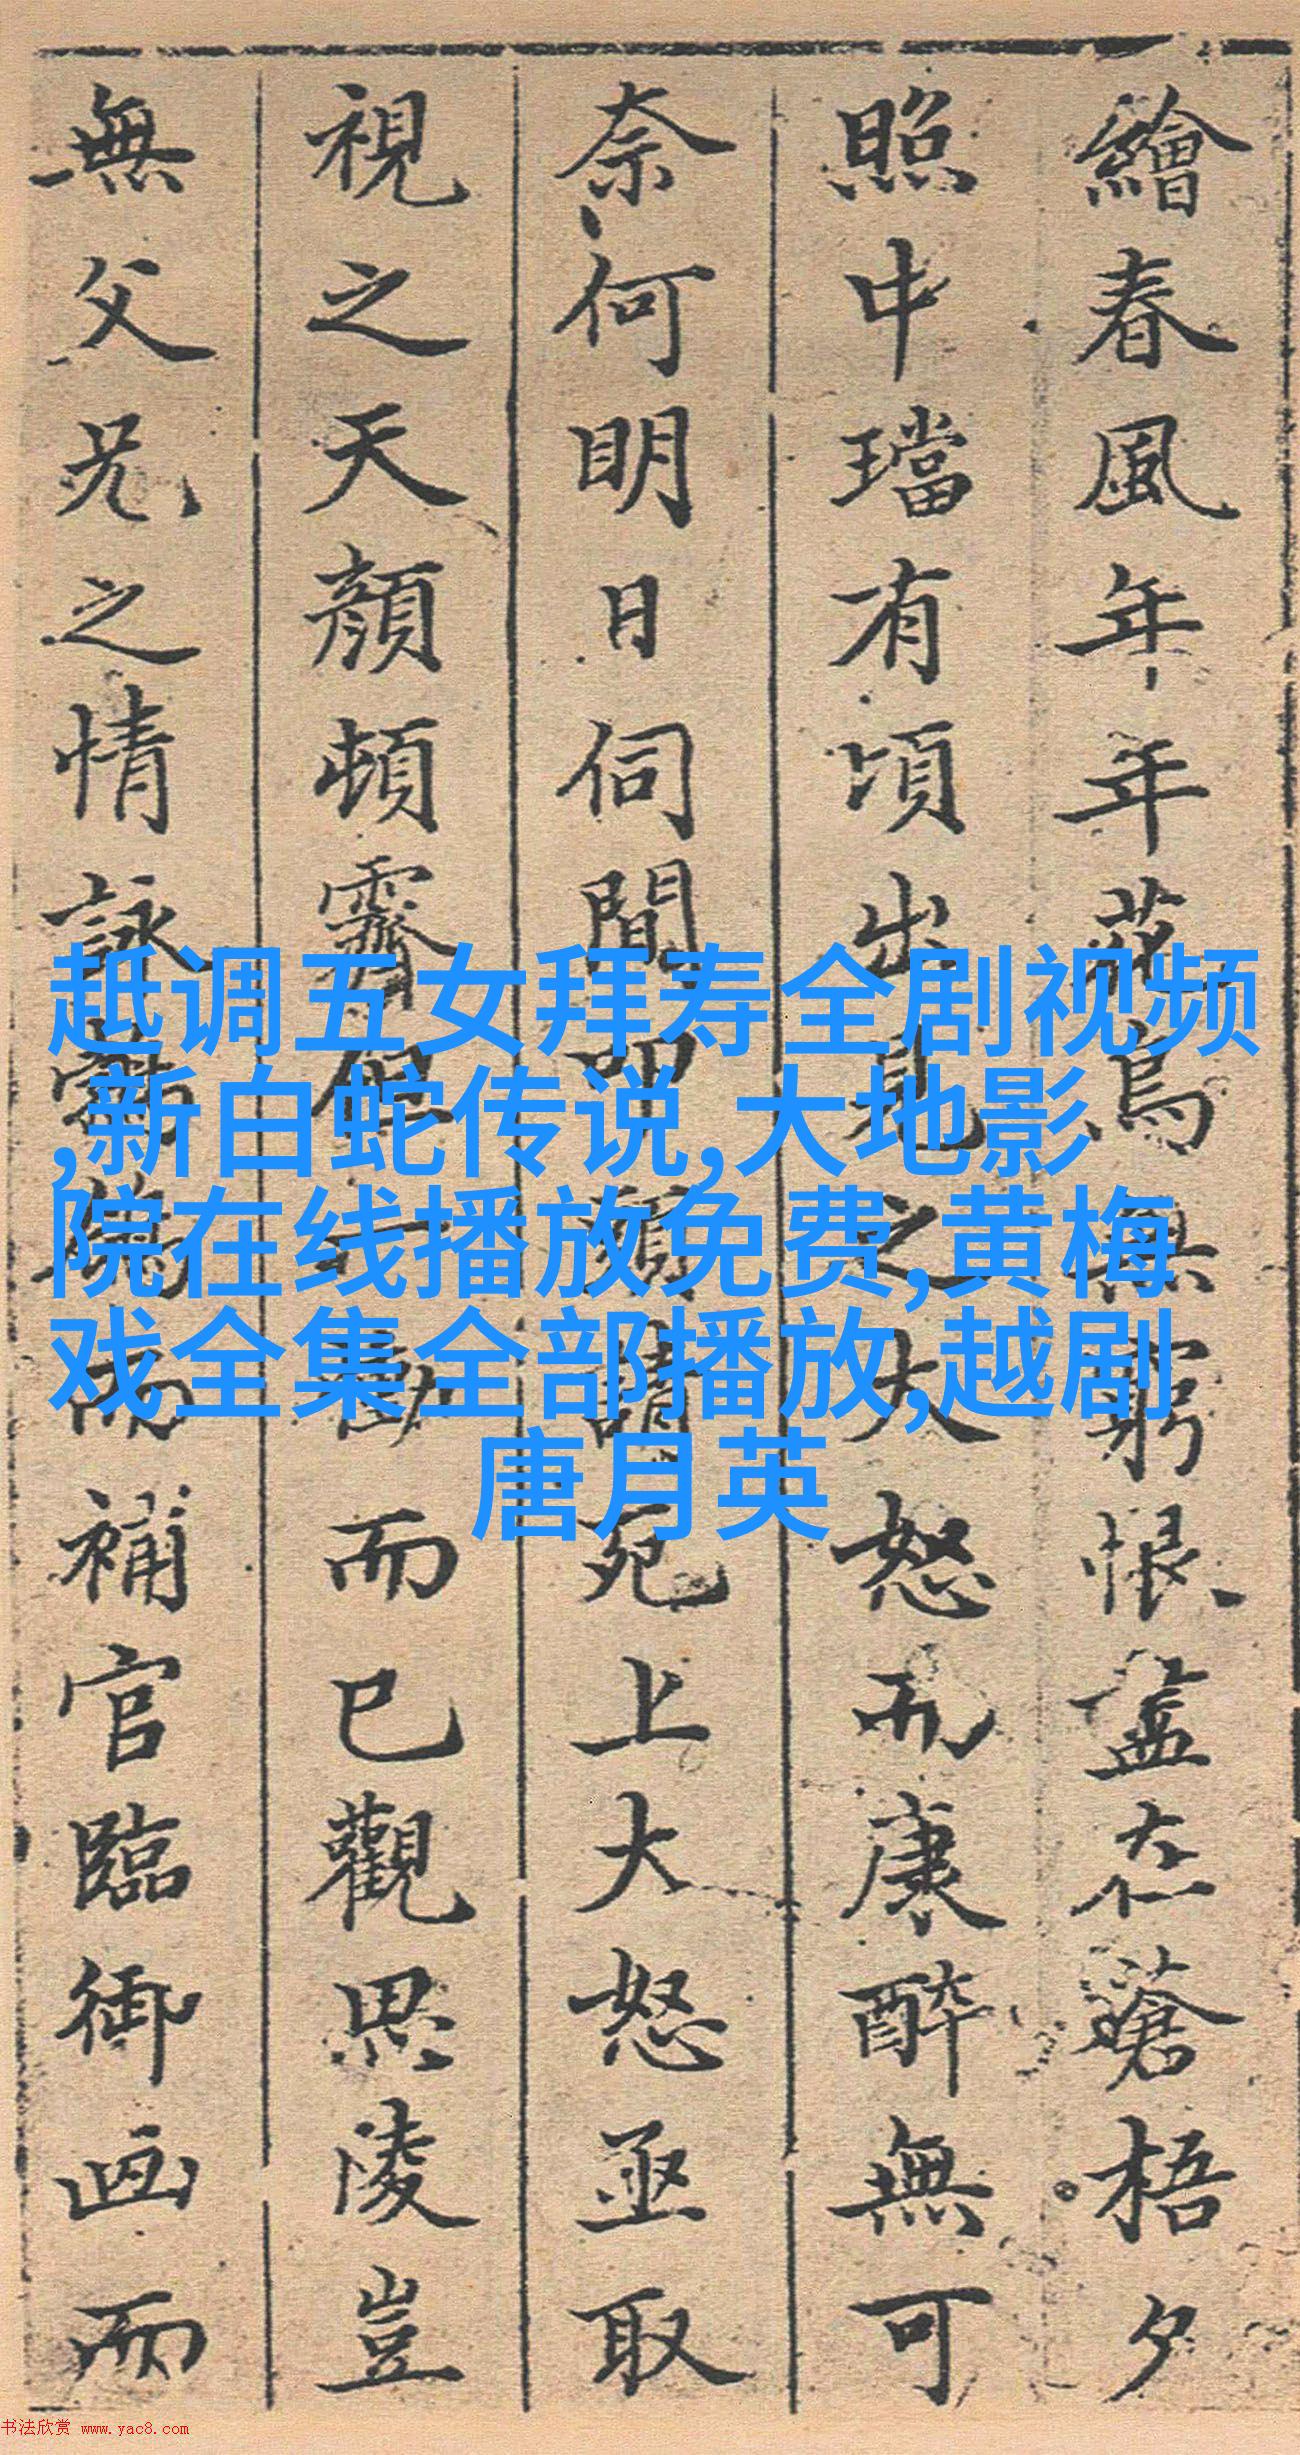 繪春風年年花鳥無窮恨盡在蒼梧夕
照中璫有頃出見之大怒而康醉無可
奈何明日伺間叩頭請死上大怒亟取
視之天顏頓霽但一慟而已觀思陵豈
無父兄之情詠而補官臨御画而
越调五女拜寿全剧视频
,新白蛇传说,大地影
院在线播放免费,黄梅
戏全集全部播放,越剧
唐月英
书法欣赏 www.yac8.com